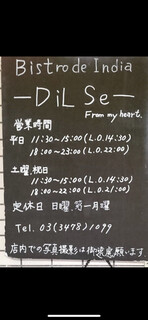 Bistro de India
—DiL Se—
From my heart.
営業時間
平日 11:30~15:00(L.O.14:30)
18:00~23:00(L.O.22:00)
土曜.祝日
11:30~15:00(L.O.14:30)
18:00~22:00(L.O.21:00)
定休日 日曜.第一月曜
Tel. 03(3478)1099
店内での写真撮影は御遠慮願います